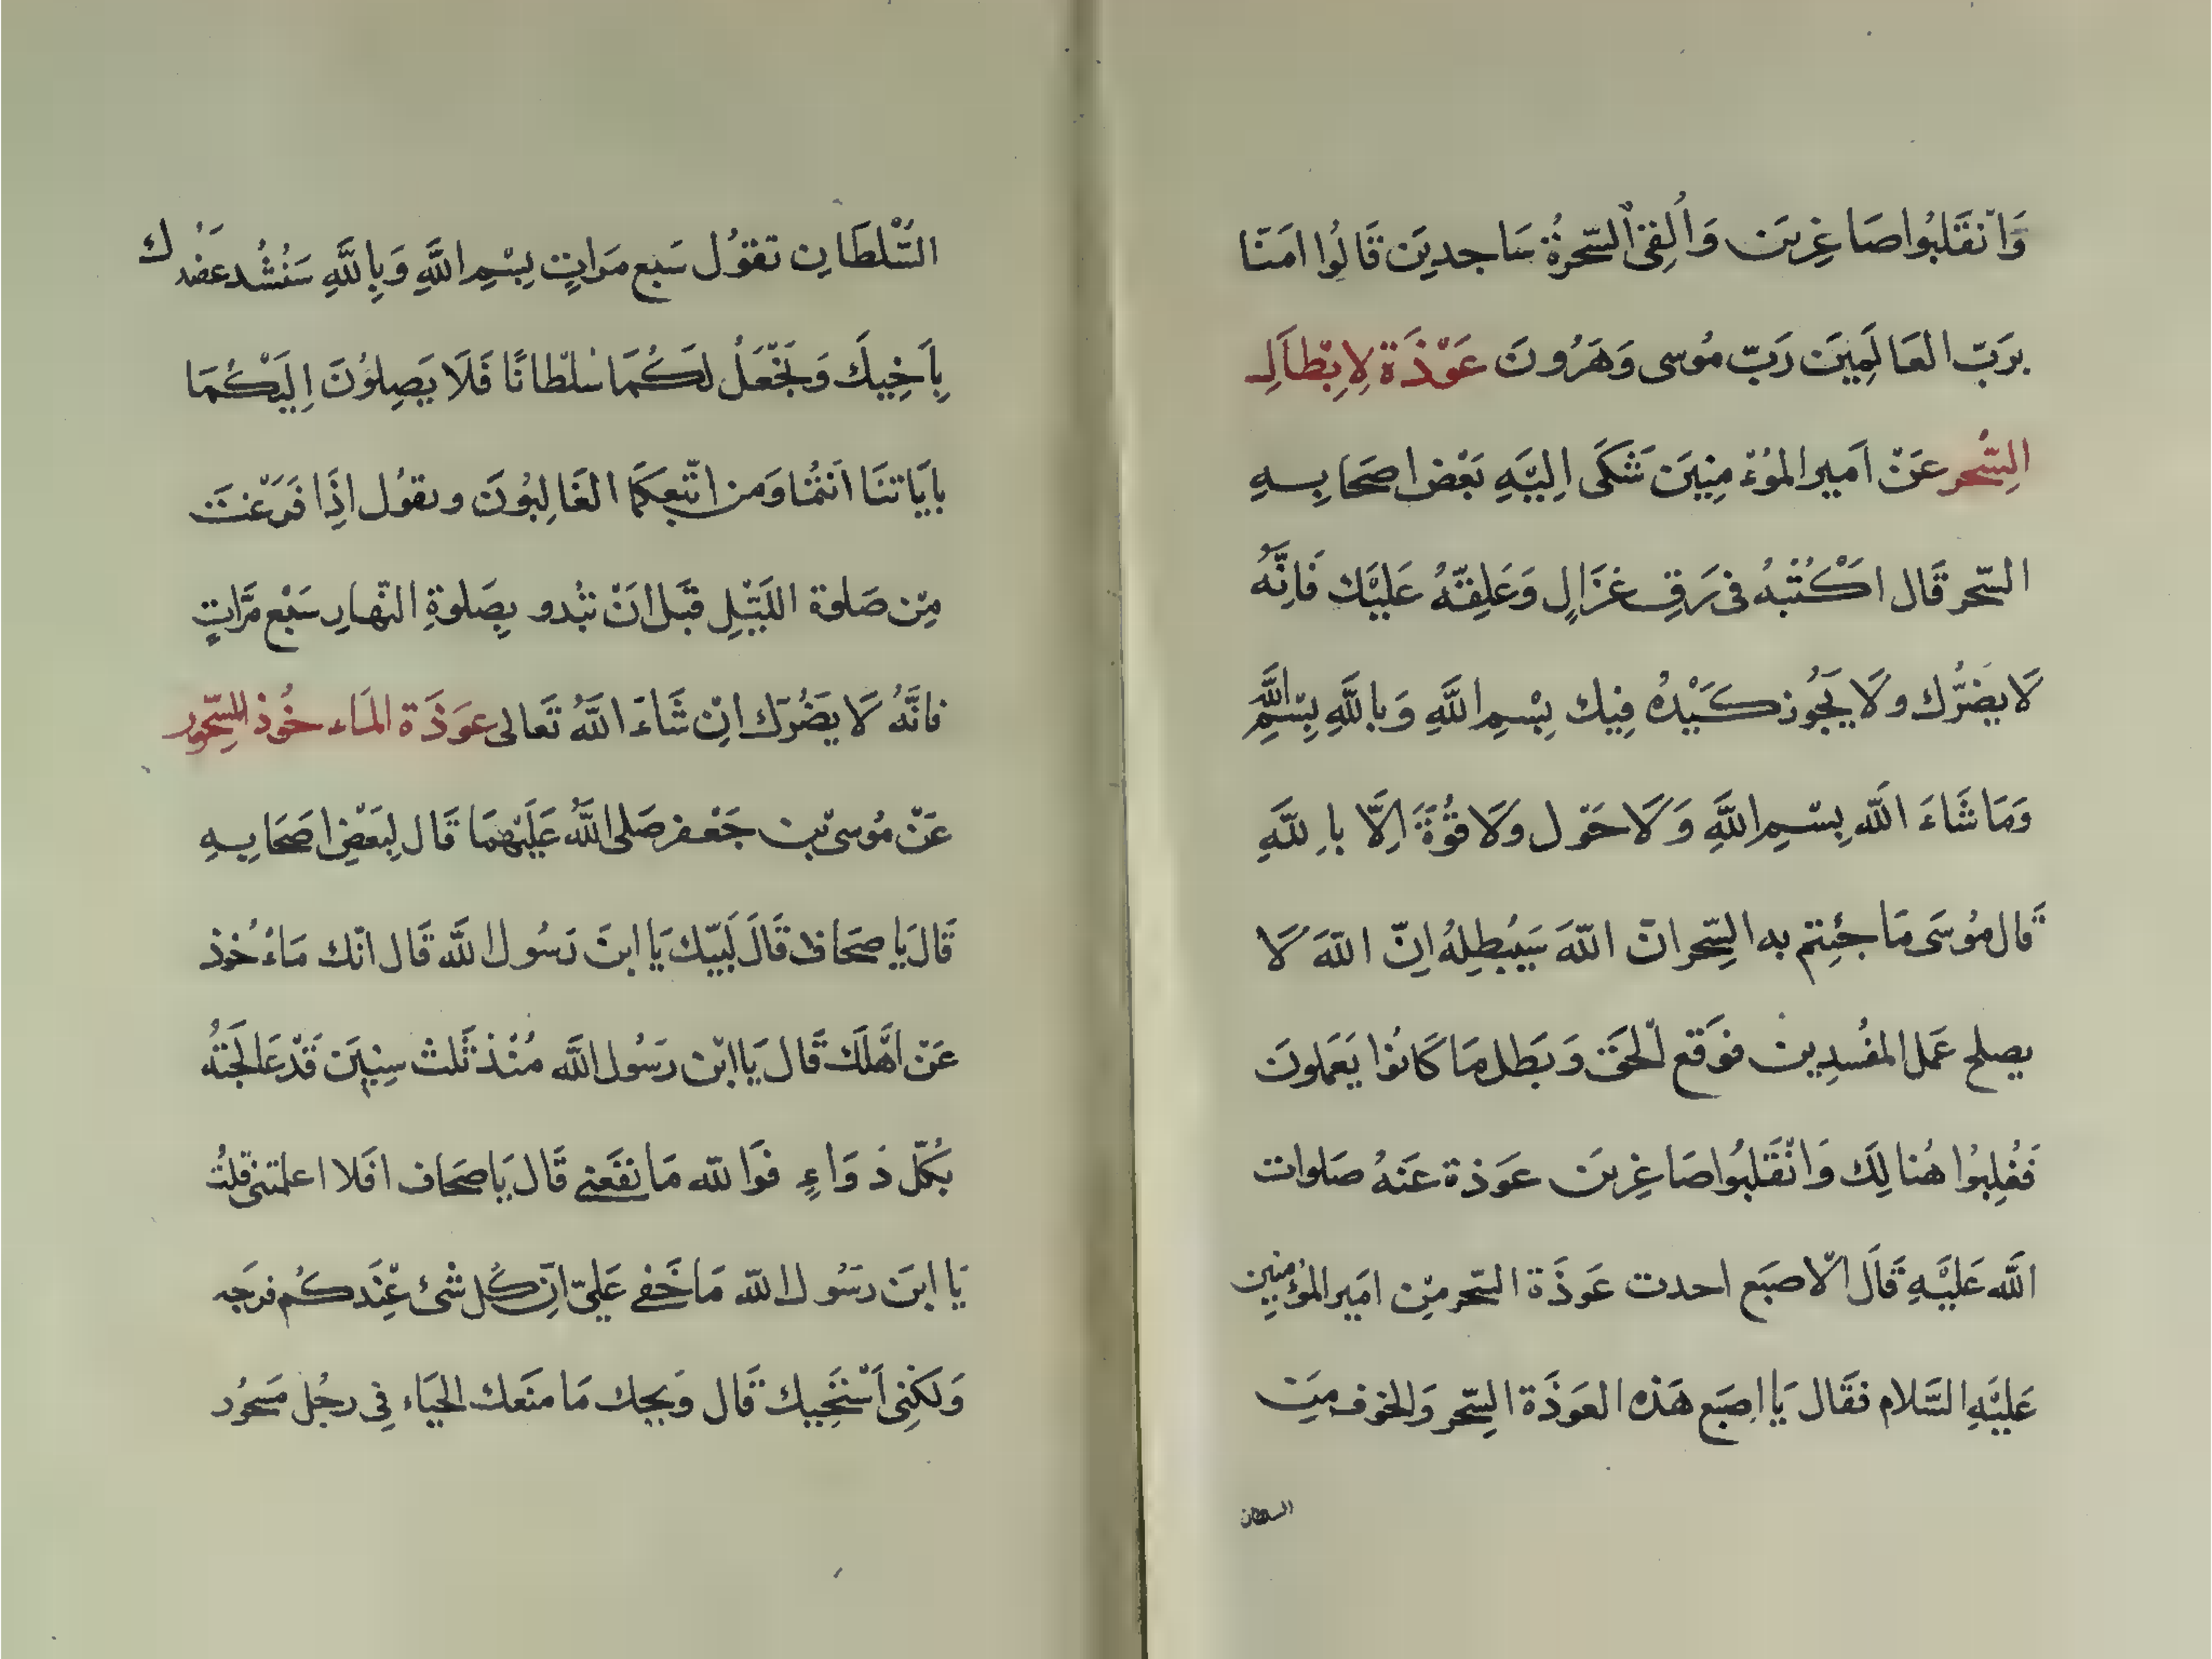 وَانْقَلَبُوا صَاغِرِينَ وَأُلْقِيَ السَّحَرَةُ سَاجِدِينَ قَالُوا امَنَّا
بِرَبِّ العَالَمِينَ رَبِّ مُوسى وَهَرُونَ عَوْذَة لِاِبْطَالِ
السِّحرِ عَنْ اَمير المُؤْمِنِينَ شَكَى اِلَيْهِ بَعْض اصحَابِهِ
السّحر قَال اكْتُبْهُ فى رَقِ غَزَالٍ وَعَلِقْهُ عَلَيْكَ فَاِنَّهُ
لَا يضُرُّك ولَا يَجُوز كَيْدهُ فِيك بِسْمِ اللَّهِ وَبِاللَّهِ بِسْمِ اللَّهِ
وَمَا شَاءَ اللَّه بِسْمِ اللَّهِ وَلَا حَوْل ولَا قُوَّةَ اِلَّا بِاللَّهِ
قَال مُوسَى مَا جِئتم به السِّحر انّ اللّهَ سَيُبْطِلهُ اِنّ اللّهَ لَا
يصلح عَمل المفُسِدِين فَوَقع الْحَقّ وَبَطل مَا كَانُوا يَعَملونَ
فَغُلِبُوا هُنالِكَ وَانْقَلَبُوا صَاغِرينَ عَوذة عَنهُ صَلوات
اللَّه عَلَيْهِ قَالَ الْاصبَع احدت عَوذَة السّحر مِن امَير المؤُمِنِين
عَلَيْهِ السَّلام فقَال يَا اصِبَع هَذه العَوذَة السِّحر وَالخوف مِنَ
السلطان
السُّلْطَانِ تقوُل سَبع مَراتٍ بِسْمِ اللَّهِ وَبِاللَّهِ سَنَشُد عَضُدَك
بِاَخِيكَ وَنَجْعَلُ لَكُمَا سُلْطانًا فَلَا يَصِلوُنَ اِلَيْكُمَا
بايَاتنَا اَنتُمَا وَمن اتّبعكمَا الغَالِبُونَ وتقوُل اذِا فَرَغتَ
مِن صَلوة اللَيْلِ قَبل انْ تبُدو بِصَلوةِ النّهارِ سَبْع مَّراتٍ
فانَّهُ لَا يضَرُك اِنْ شَاءَ اللَّهُ تَعَالى عوَذَة المَاء خُوذ للسّحور
عَنْ مُوسىْ بن جَعْفر صَلى اللَّهُ عَلَيْهمَا قَال لِبَعْضِ اصَحَابِهِ
قَالَ يَا صحَاف قَالَ لَبّيك يَا ابنَ رَسُول اللَّه قَال انّك مَاءخُوذ
عَنْ اَهلَك قَال يَا ابْن رَسُول اللَّه مُنْذ ثَلث سِنِين قَدْ عَالَجتهُ
بُكلّ دَوَاءٍ فوَاللّه مَا نفَعَنى قَال يَا صحَاف افَلا اعلمتنى قلتُ
يَا ابنَ رسَوُل اللّه مَا خَفى عَليّ اَنّ كُل شْئ عِنْدَكُم فرجَه
وَلكَنِى اَسْتَحْيِيك قَال وَيحك مَا منَعك الحَيَاء فِى رجُل مَسحُور